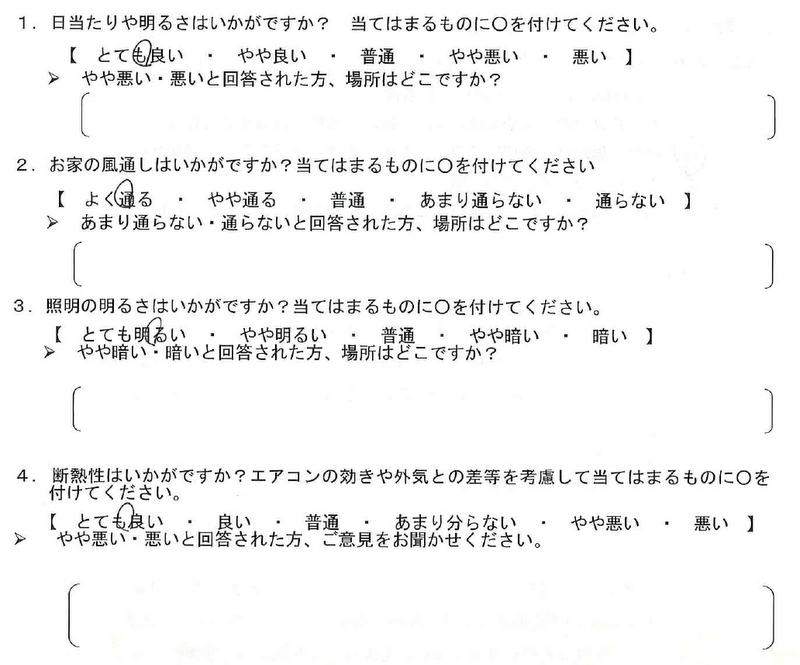 １．日当たりや明るさはいかがですか？　当てはまるものに〇を付けてください。
【　とても良い　・　やや良い　・　普通　・　やや悪い　・　悪い　】
➢　やや悪い・悪いと回答された方、場所はどこですか？
２．お家の風通しはいかがですか？当てはまるものに〇を付けてください
【　よく通る　・　やや通る　・　普通　・　あまり通らない　・　通らない　】
➢　あまり通らない・通らないと回答された方、場所はどこですか？
３．照明の明るさはいかがですか？当てはまるものに〇を付けてください。
【　とても明るい　・　やや明るい　・　普通　・　やや暗い　・　暗い　】
➢　やや暗い・暗いと回答された方、場所はどこですか？
４．断熱性はいかがですか？エアコンの効きや外気との差等を考慮して当てはまるものに〇を
付けてください。
【　とても良い　・　良い　・　普通　・　あまり分らない　・　やや悪い　・　悪い　】
➢　やや悪い・悪いと回答された方、ご意見をお聞かせください。